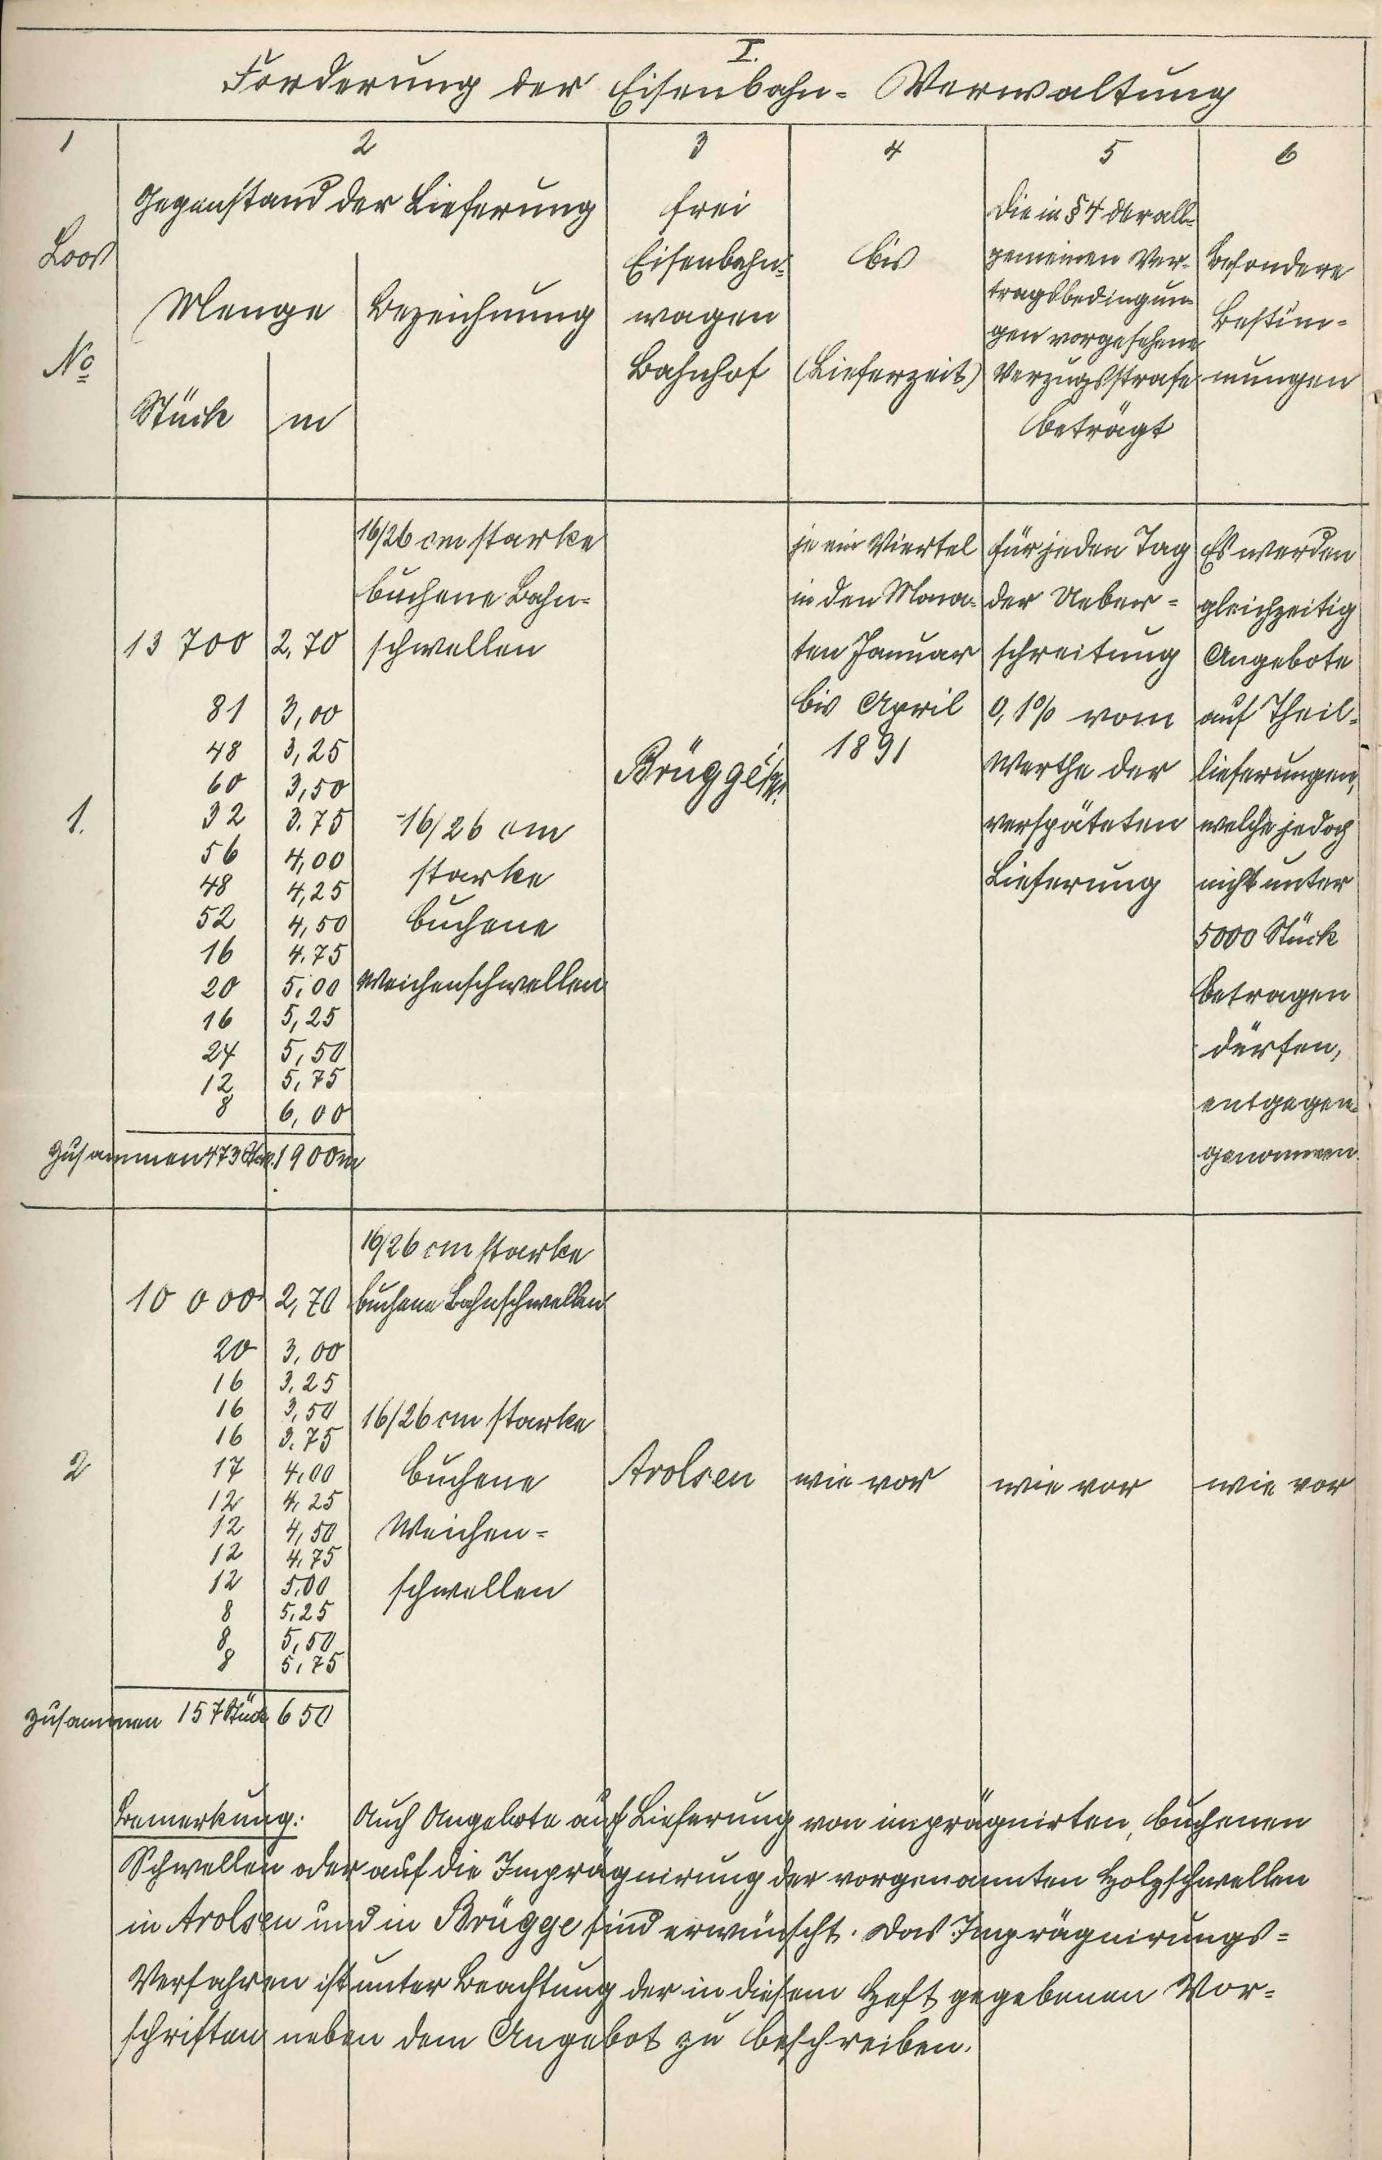 I.
Forderung der Eisenbahn-Verwaltung
1 2 3 4 5 6
Loos
No
Gegenstand der Lieferung
Menge
Stück
m
Bezeichnung
frei
Eisenbahn-
wagen
Bahnhof
bis
(Lieferzeit)
Die in § 4 der all-
gemeinen Ver-
tragsbedingun-
gen vorgesehene
Verzugsstrafe
beträgt
Besondere
Bestim-
mungen
1.
13 700 2,70
81 3,00
48 3,25
60 3,50
32 3.75
56 4,00
48 4,25
52 4,50
16 4.75
20 5,00
16 5,25
24 5,50
12 5,75
8 6,00
zusammen 473 Stck. 1900 m
16/26 cm starke
buchene Bahn-
schwellen
16/26 cm
starke
buchene
Weichenschwellen
Brügge i/W.
je ein Viertel
in den Mona-
ten Januar
bis April
1891
für jeden Tag
der Ueber-
schreitung
0,1% vom
Werthe der
verspäteten
Lieferung
Es werden
gleichzeitig
Angebote
auf Theil-
lieferungen,
welche jedoch
nicht unter
5000 Stück
betragen
dürfen,
entgegen-
genommen.
2
10 000 2,70
20 3,00
16 3,25
16 3,50
16 3.75
17 4,00
12 4,25
12 4,50
12 4,75
12 5,00
8 5,25
8 5,50
8 5,75
zusammen 157 Stück 650
16/26 cm starke
buchene Bahnschwellen
16/26 cm starke
buchene
Weichen-
schwellen
Arolsen
wie vor
wie vor
wie vor
Bemerkung: Auch Angebote auf Lieferung von imprägnirten, buchenen
Schwellen oder auf die Imprägnirung der vorgenannten Holzschwellen
in Arolsen und in Brügge sind erwünscht. Das Imprägnirungs-
Verfahren ist unter Beachtung der in diesem Heft gegebenen Vor-
schriften neben dem Angebot zu beschreiben.